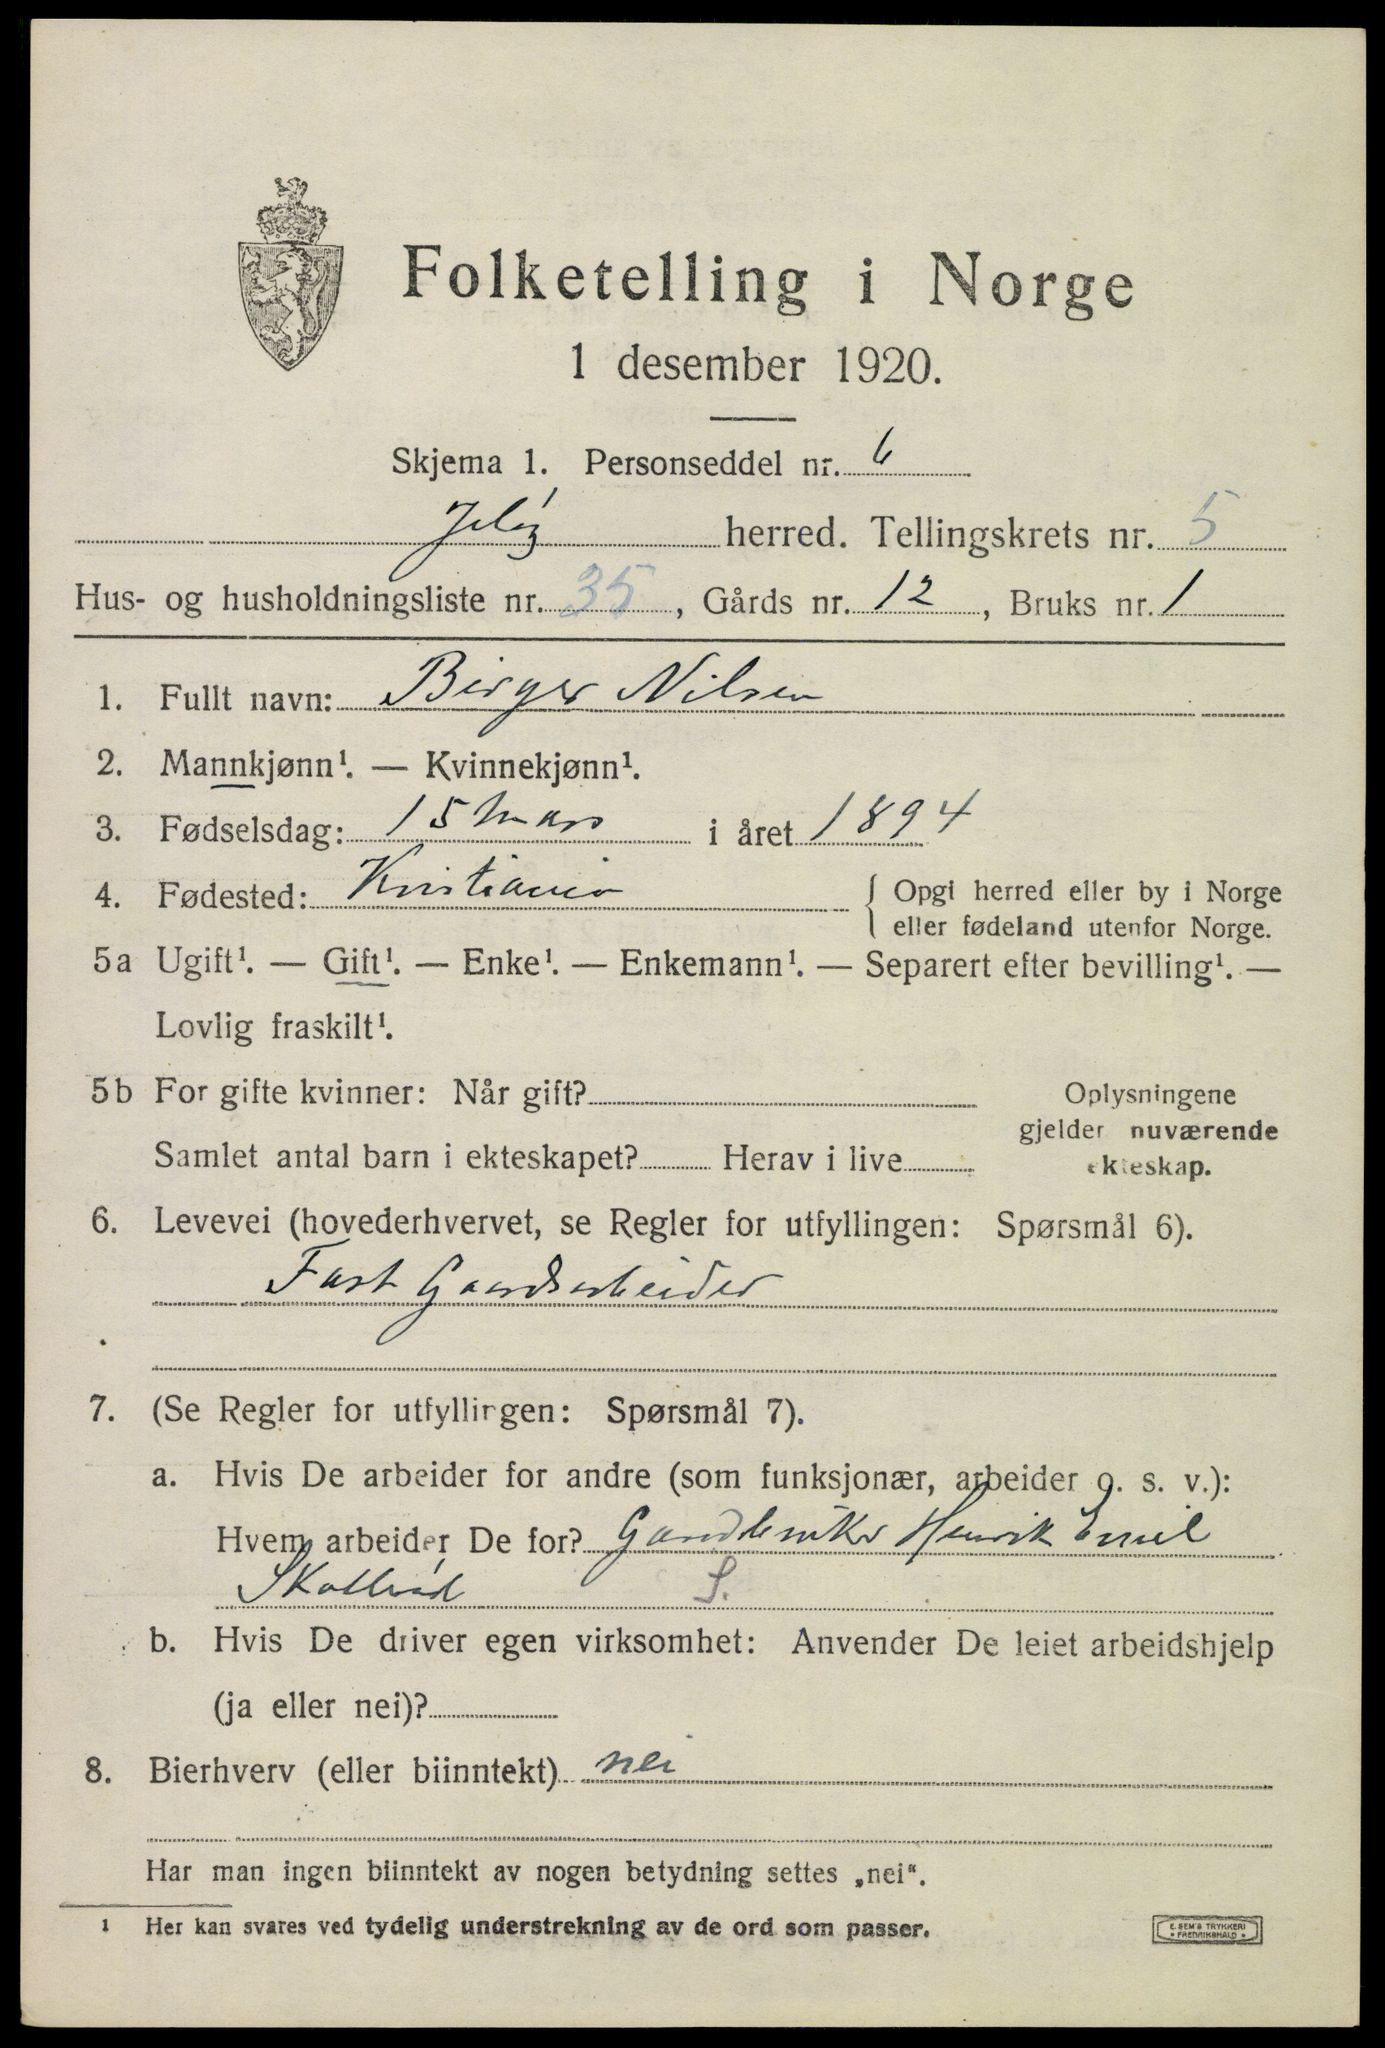 Folketelling i Norge
1 desember 1920.
Skjema 1. Personseddel nr. 6
Jeløy herred. Tellingskrets nr. 5
Hus- og husholdningsliste nr. 35, Gårds nr. 12, Bruks nr. 1
1. Fullt navn: Birger Nilsen
2. Mannkjønn¹. — Kvinnekjønn¹.
3. Fødselsdag: 15 Mars i året 1894
4. Fødested: Kristiania { Opgi herred eller by i Norge
eller fødeland utenfor Norge.
5a Ugift¹. — Gift¹. — Enke¹. — Enkemann¹. — Separert efter bevilling¹. —
Lovlig fraskilt¹.
5b For gifte kvinner: Når gift? Oplysningene
gjelder nuværende
Samlet antal barn i ekteskapet? Herav i live ekteskap.
6. Levevei (hovederhvervet, se Regler for utfyllingen: Spørsmål 6).
Fast Gaardsarbeider
7. (Se Regler for utfyllingen: Spørsmål 7).
a. Hvis De arbeider for andre (som funksjonær, arbeider o. s. v.):
Hvem arbeider De for? Gaardbruker Henrik Emil
Skallerød S.
b. Hvis De driver egen virksomhet: Anvender De leiet arbeidshjelp
(ja eller nei)?
8. Bierhverv (eller biinntekt) nei
Har man ingen biinntekt av nogen betydning settes „nei“.
1 Her kan svares ved tydelig understrekning av de ord som passer.
E. SEM'S TRYKKERI
• FREDRIKSHALD •